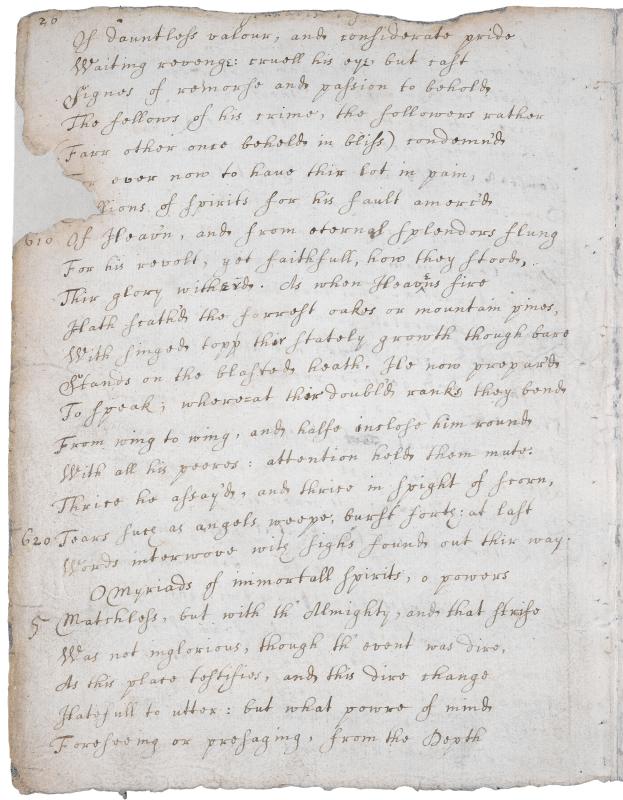 20
Of dauntless valour, and considerate pride
Waiting revenge: cruell his eye but cast
Signes of remorse and passion to behold
The fellows of his crime, the followers rather
Farr other once beheld in bliss) condemn'd
ever now to have thir lot in pain,
llions of spirits for his fault amerc'd
610 Of Heav'n, and from eternal splendors flung
For his revolt, yet faithfull, how they stood,
Thir glory witherd. As when Heavens fire
Hath scath'd the forrest oakes or mountain pines,
With singed topp thir stately growth though bare
Stands on the blasted heath. He now prepar'd
To speak; whereat thir doubl'd ranks they bend
From wing to wing, and halfe inclose him round
With all his peeres: attention held them mute.
Thrice he assay'd, and thrice in spight of scorn,
620 Tears such as angels weepe, burst forth: at last
Words interwove with sighs found out thir way.
O Myriads of immortall spirits, o powers
5 Matchless, but with th' Almighty, and that strife
Was not inglorious, though th' event was dire,
As this place testifies, and this dire change
Hatefull to utter: but what powre of mind
Foreseeing or presaging, from the Depth